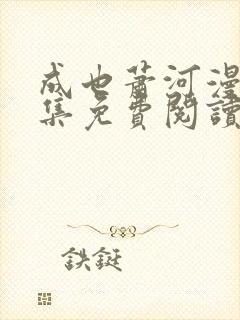 成也萧河漫
集免費閱讀
鉄鋌